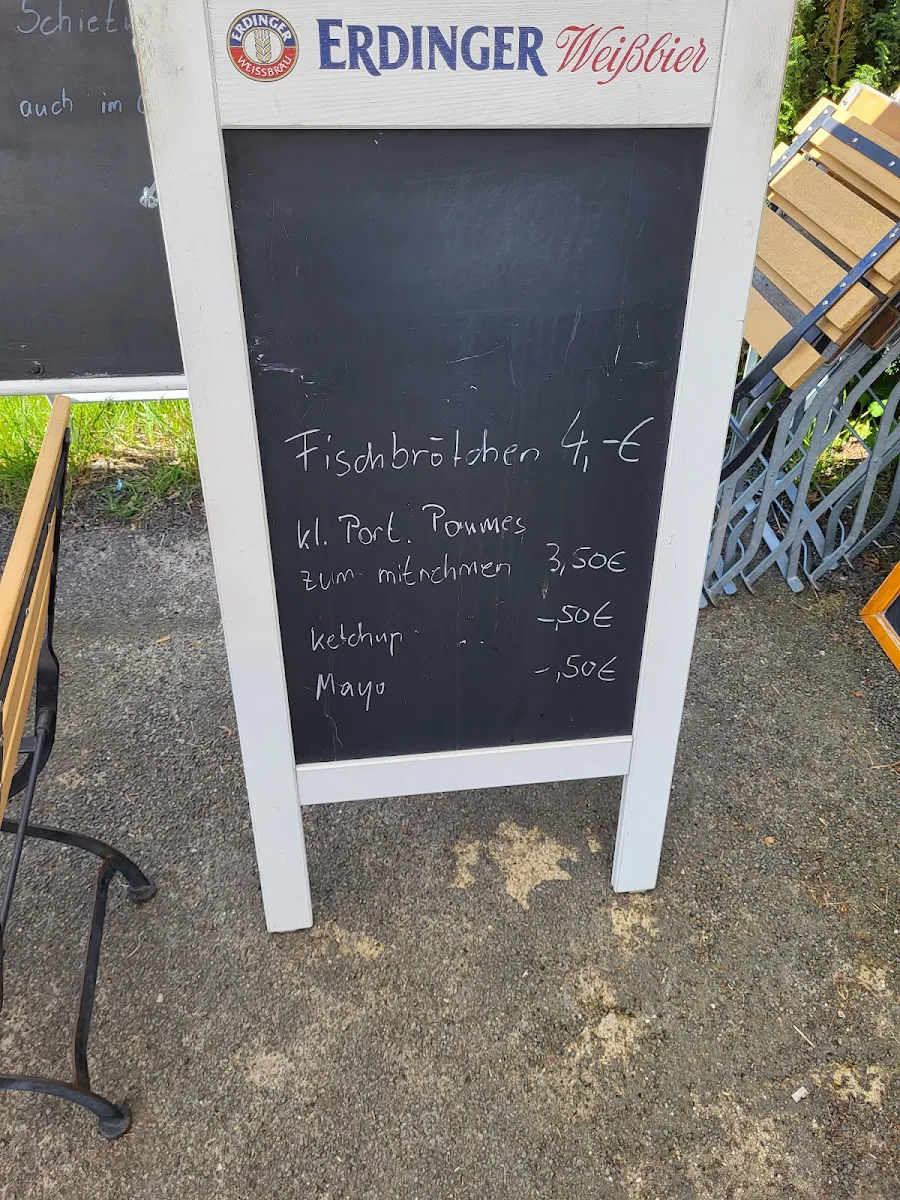 Schietw
auch im
ERDINGER
WEISSBRÄU
ERDINGER Weißbier
Fischbrötchen 4,-€
kl. Port. Pommes
zum mitnehmen 3,50€
ketchup -,50€
Mayo -,50€